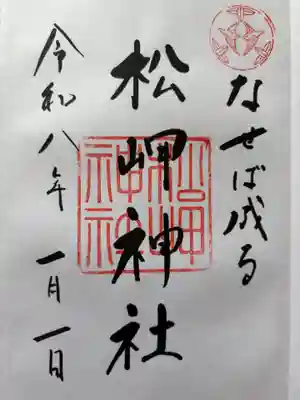 なせば成る
松岬神社
令和八年 一月一日